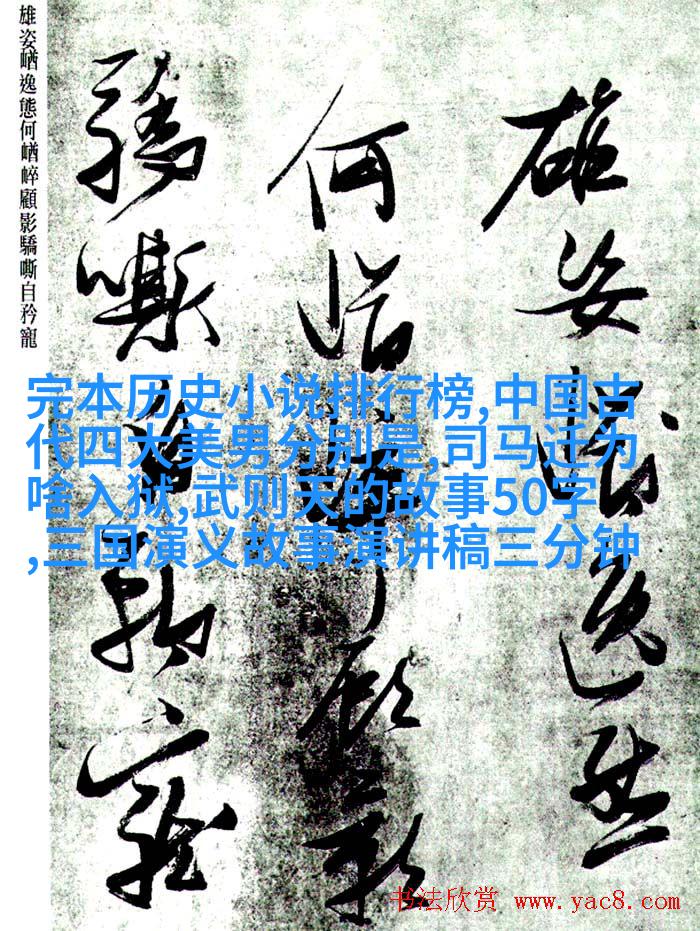 雄姿崷逸態
何崷崪顧影
驕嘶自矜寵
雄姿崷逸態何崷崪顧影驕嘶自矜寵
完本历史小说排行榜,中国古
代四大美男分别是,司马迁为
啥入狱,武则天的故事50字
,三国演义故事演讲稿三分钟
书法欣赏 www.yac8.com